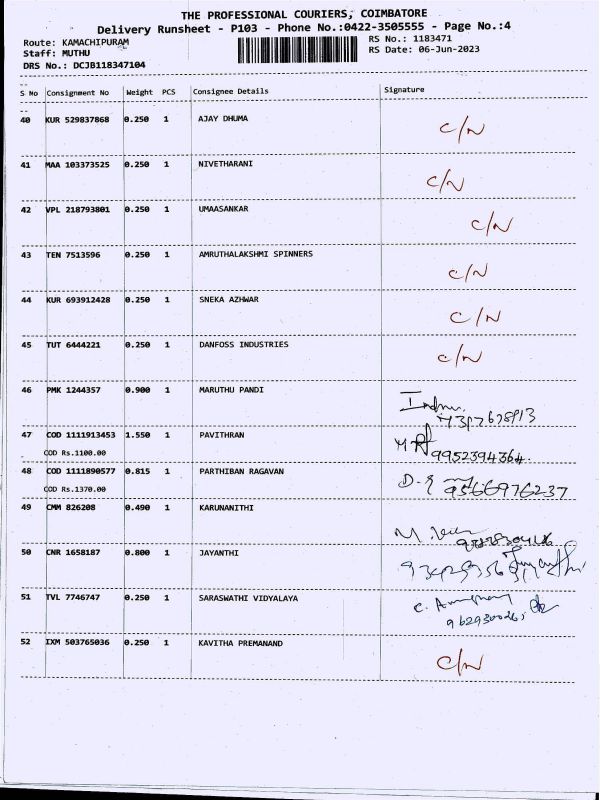 THE PROFESSIONAL COURIERS, COIMBATORE
Delivery Runsheet - P103 - Phone No.:0422-3505555 - Page No.:4
Route: KAMACHIPURAM
RS No.: 1183471
Staff: MUTHU
RS Date: 06-Jun-2023
DRS No.: DCJB118347104
S No Consignment No Weight PCS Consignee Details Signature
40 KUR 529837868 0.250 1 AJAY DHUMA C/N
41 MAA 103373525 0.250 1 NIVETHARANI C/N
42 VPL 218793801 0.250 1 UMAASANKAR C/N
43 TEN 7513596 0.250 1 AMRUTHALAKSHMI SPINNERS C/N
44 KUR 693912428 0.250 1 SNEKA AZHWAR C/N
45 TUT 6444221 0.250 1 DANFOSS INDUSTRIES C/N
46 PMK 1244357 0.900 1 MARUTHU PANDI
47 COD 1111913453 1.550 1 PAVITHRAN
COD Rs.1100.00 9952394364
48 COD 1111890577 0.815 1 PARTHIBAN RAGAVAN
COD Rs.1370.00 9566976237
49 CMM 826208 0.490 1 KARUNANITHI
50 CNR 1658187 0.800 1 JAYANTHI
51 TVL 7746747 0.250 1 SARASWATHI VIDYALAYA
52 IXM 503765036 0.250 1 KAVITHA PREMANAND C/N